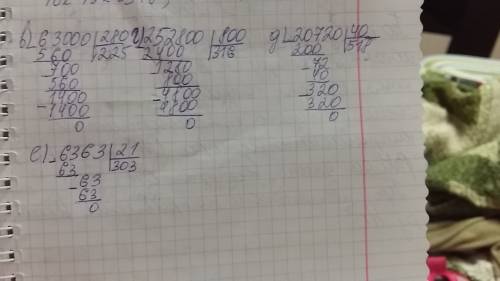 в) 63000 | 280
560 | 225
700
560
1400
1400
0
г) 252800 | 800
2400 | 316
1280
800
4800
4800
0
д) 20720 | 40
200 | 518
72
40
320
320
0
е) 6363 | 21
63 | 303
63
63
0